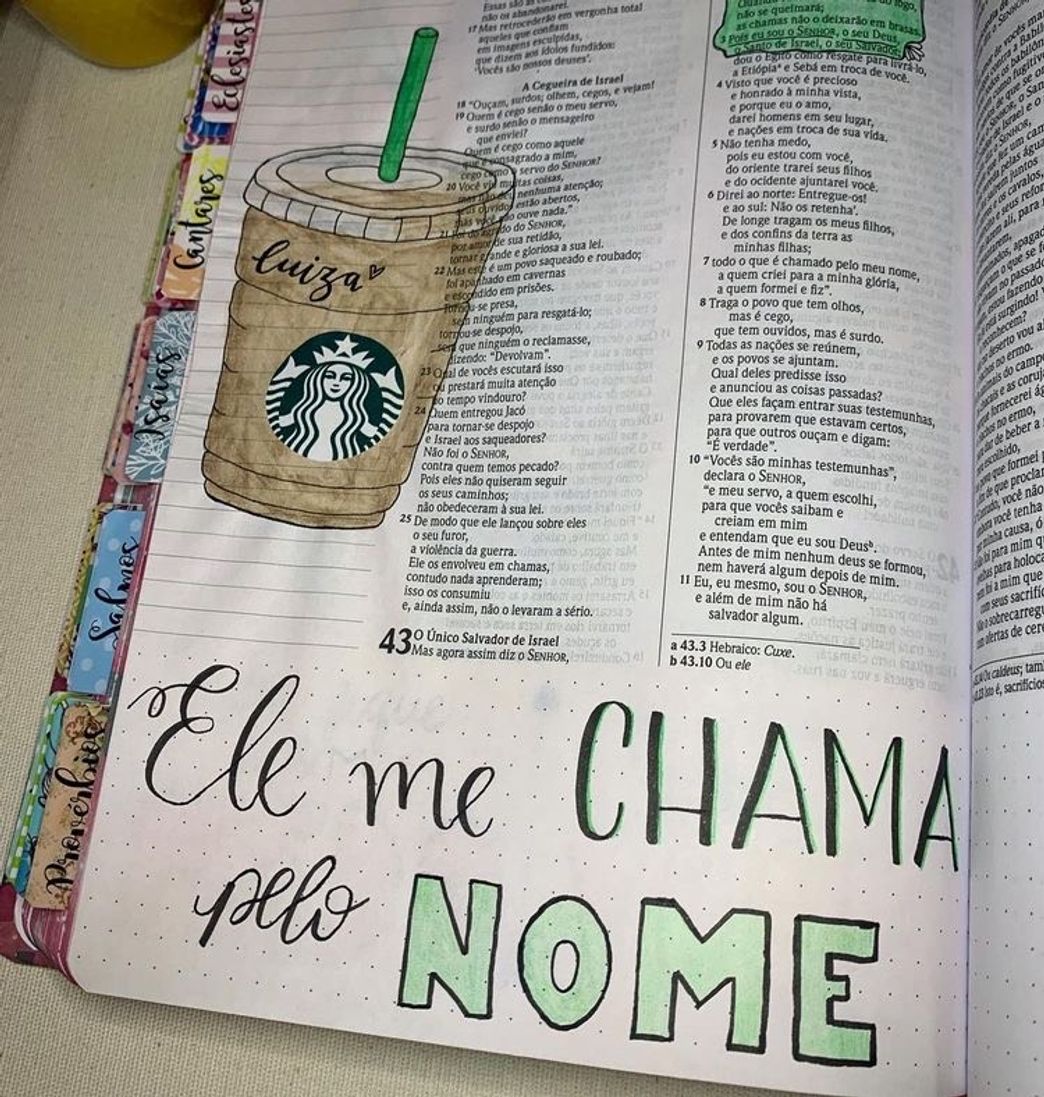 Eclesiastes
Cantares
Isaías
Salmos
Provérbios
luiza
não os abandonarei.
17 Mas retrocederão em vergonha total
aqueles que confiam
em imagens esculpidas,
que dizem aos ídolos fundidos:
'Vocês são nossos deuses'.
A Cegueira de Israel
18 "Ouçam, surdos; olhem, cegos, e vejam!
19 Quem é cego senão o meu servo,
e surdo senão o mensageiro
que enviei?
Quem é cego como aquele
que é consagrado a mim,
cego como o servo do SENHOR?
20 Você viu muitas coisas,
mas não deu nenhuma atenção;
seus ouvidos estão abertos,
mas você não ouve nada."
21 Foi do agrado do SENHOR,
por amor de sua retidão,
tornar grande e gloriosa a sua lei.
22 Mas este é um povo saqueado e roubado;
foi apanhado em cavernas
e escondido em prisões.
Tornou-se presa,
sem ninguém para resgatá-lo;
tornou-se despojo,
sem que ninguém o reclamasse,
dizendo: "Devolvam".
23 Qual de vocês escutará isso
ou prestará muita atenção
no tempo vindouro?
24 Quem entregou Jacó
para tornar-se despojo
e Israel aos saqueadores?
Não foi o SENHOR,
contra quem temos pecado?
Pois eles não quiseram seguir
os seus caminhos;
não obedeceram à sua lei.
25 De modo que ele lançou sobre eles
o seu furor,
a violência da guerra.
Ele os envolveu em chamas,
contudo nada aprenderam;
isso os consumiu
e, ainda assim, não o levaram a sério.
43 O Único Salvador de Israel
Mas agora assim diz o SENHOR,
não se queimará;
as chamas não o deixarão em brasas.
3 Pois eu sou o SENHOR, o seu Deus,
o Santo de Israel, o seu Salvador;
dou o Egito como resgate para livrá-lo,
a Etiópiaª e Sebá em troca de você.
4 Visto que você é precioso
e honrado à minha vista,
e porque eu o amo,
darei homens em seu lugar,
e nações em troca de sua vida.
5 Não tenha medo,
pois eu estou com você,
do oriente trarei seus filhos
e do ocidente ajuntarei você.
6 Direi ao norte: Entregue-os!
e ao sul: Não os retenha'.
De longe tragam os meus filhos,
e dos confins da terra as
minhas filhas;
7 todo o que é chamado pelo meu nome,
a quem criei para a minha glória,
a quem formei e fiz".
8 Traga o povo que tem olhos,
mas é cego,
que tem ouvidos, mas é surdo.
9 Todas as nações se reúnem,
e os povos se ajuntam.
Qual deles predisse isso
e anunciou as coisas passadas?
Que eles façam entrar suas testemunhas,
para provarem que estavam certos,
para que outros ouçam e digam:
"É verdade".
10 "Vocês são minhas testemunhas",
declara o SENHOR,
"e meu servo, a quem escolhi,
para que vocês saibam e
creiam em mim
e entendam que eu sou Deusᵇ.
Antes de mim nenhum deus se formou,
nem haverá algum depois de mim.
11 Eu, eu mesmo, sou o SENHOR,
e além de mim não há
salvador algum.
a 43.3 Hebraico: Cuxe.
b 43.10 Ou ele
Ele me CHAMA
pelo NOME